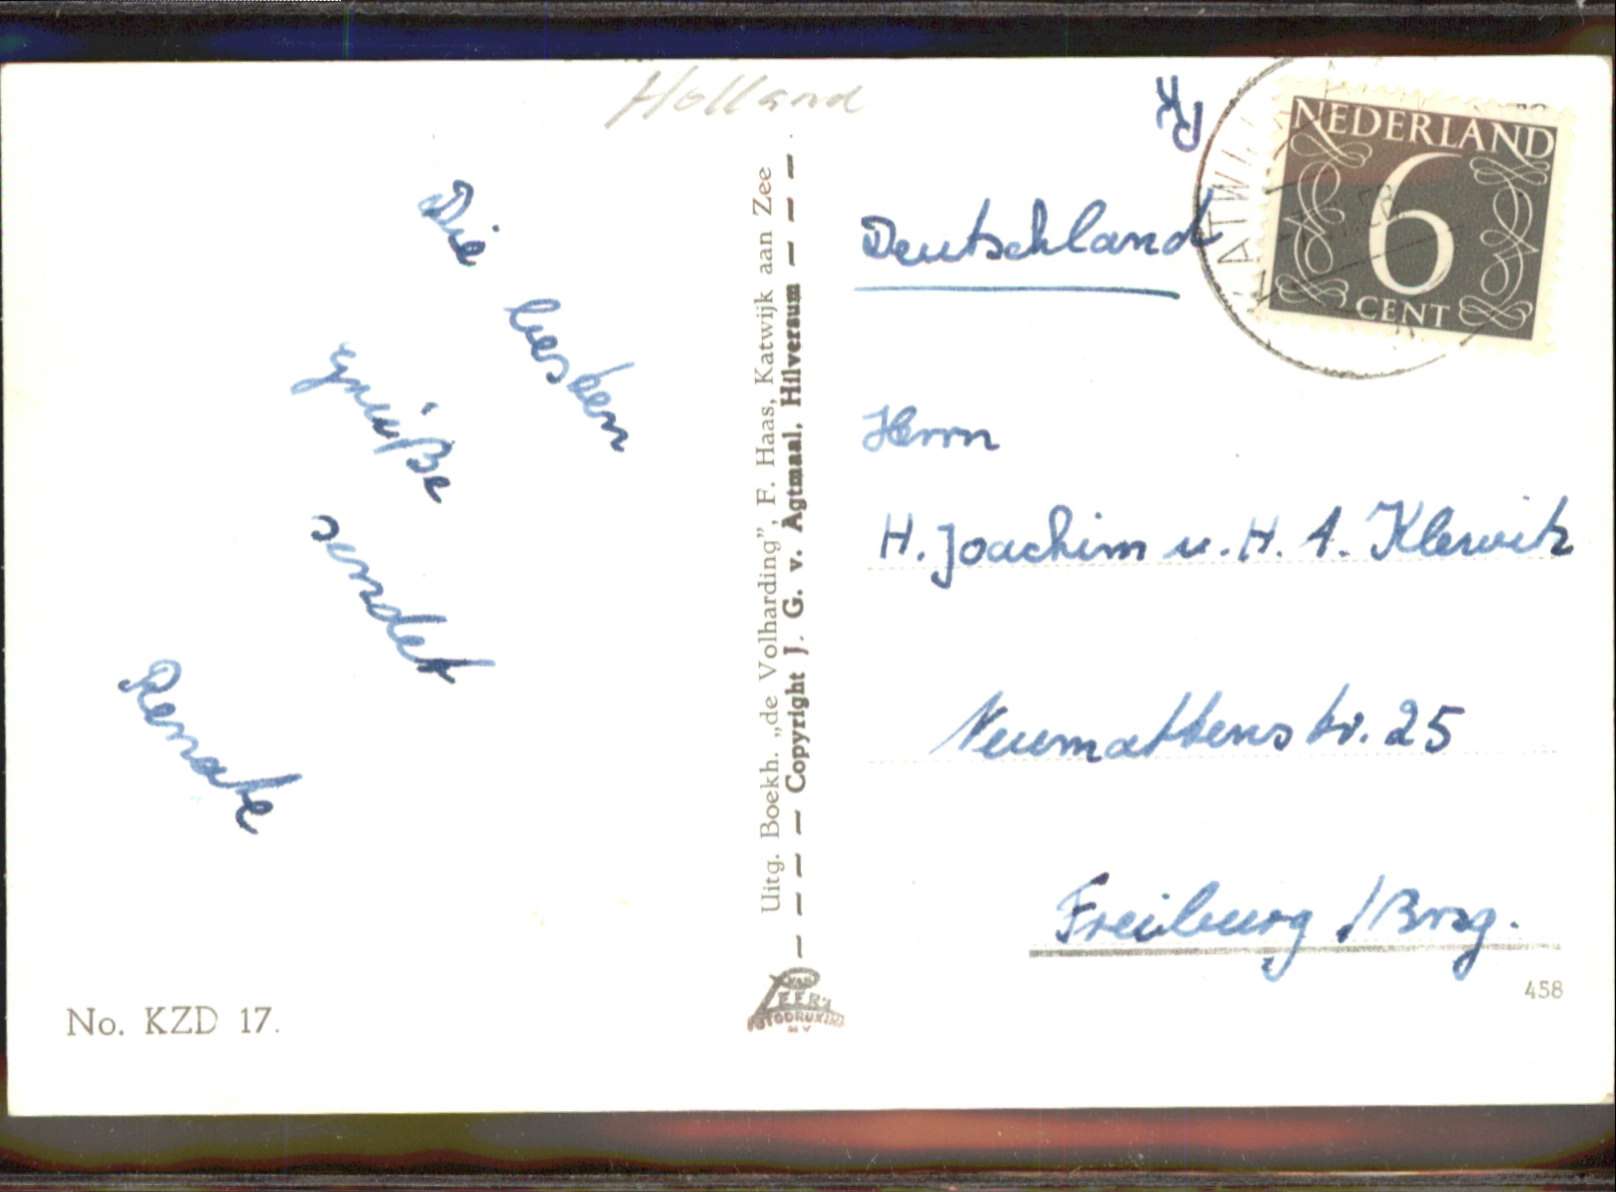 Holland
Die besten
Grüße
sendet
Renate
No. KZD 17.
Uitg. Boekh. „de Volharding”, F. Haas, Katwijk aan Zee
Copyright J. G. v. Agtmaal, Hilversum
VAN
LEER'S
FOTODRUKIND.
N V
NEDERLAND
6
CENT
KATWIJK
Deutschland
Herrn
H. Joachim u. H. A. Klewitz
Neumattenstr. 25
Freiburg /Brsg.
458